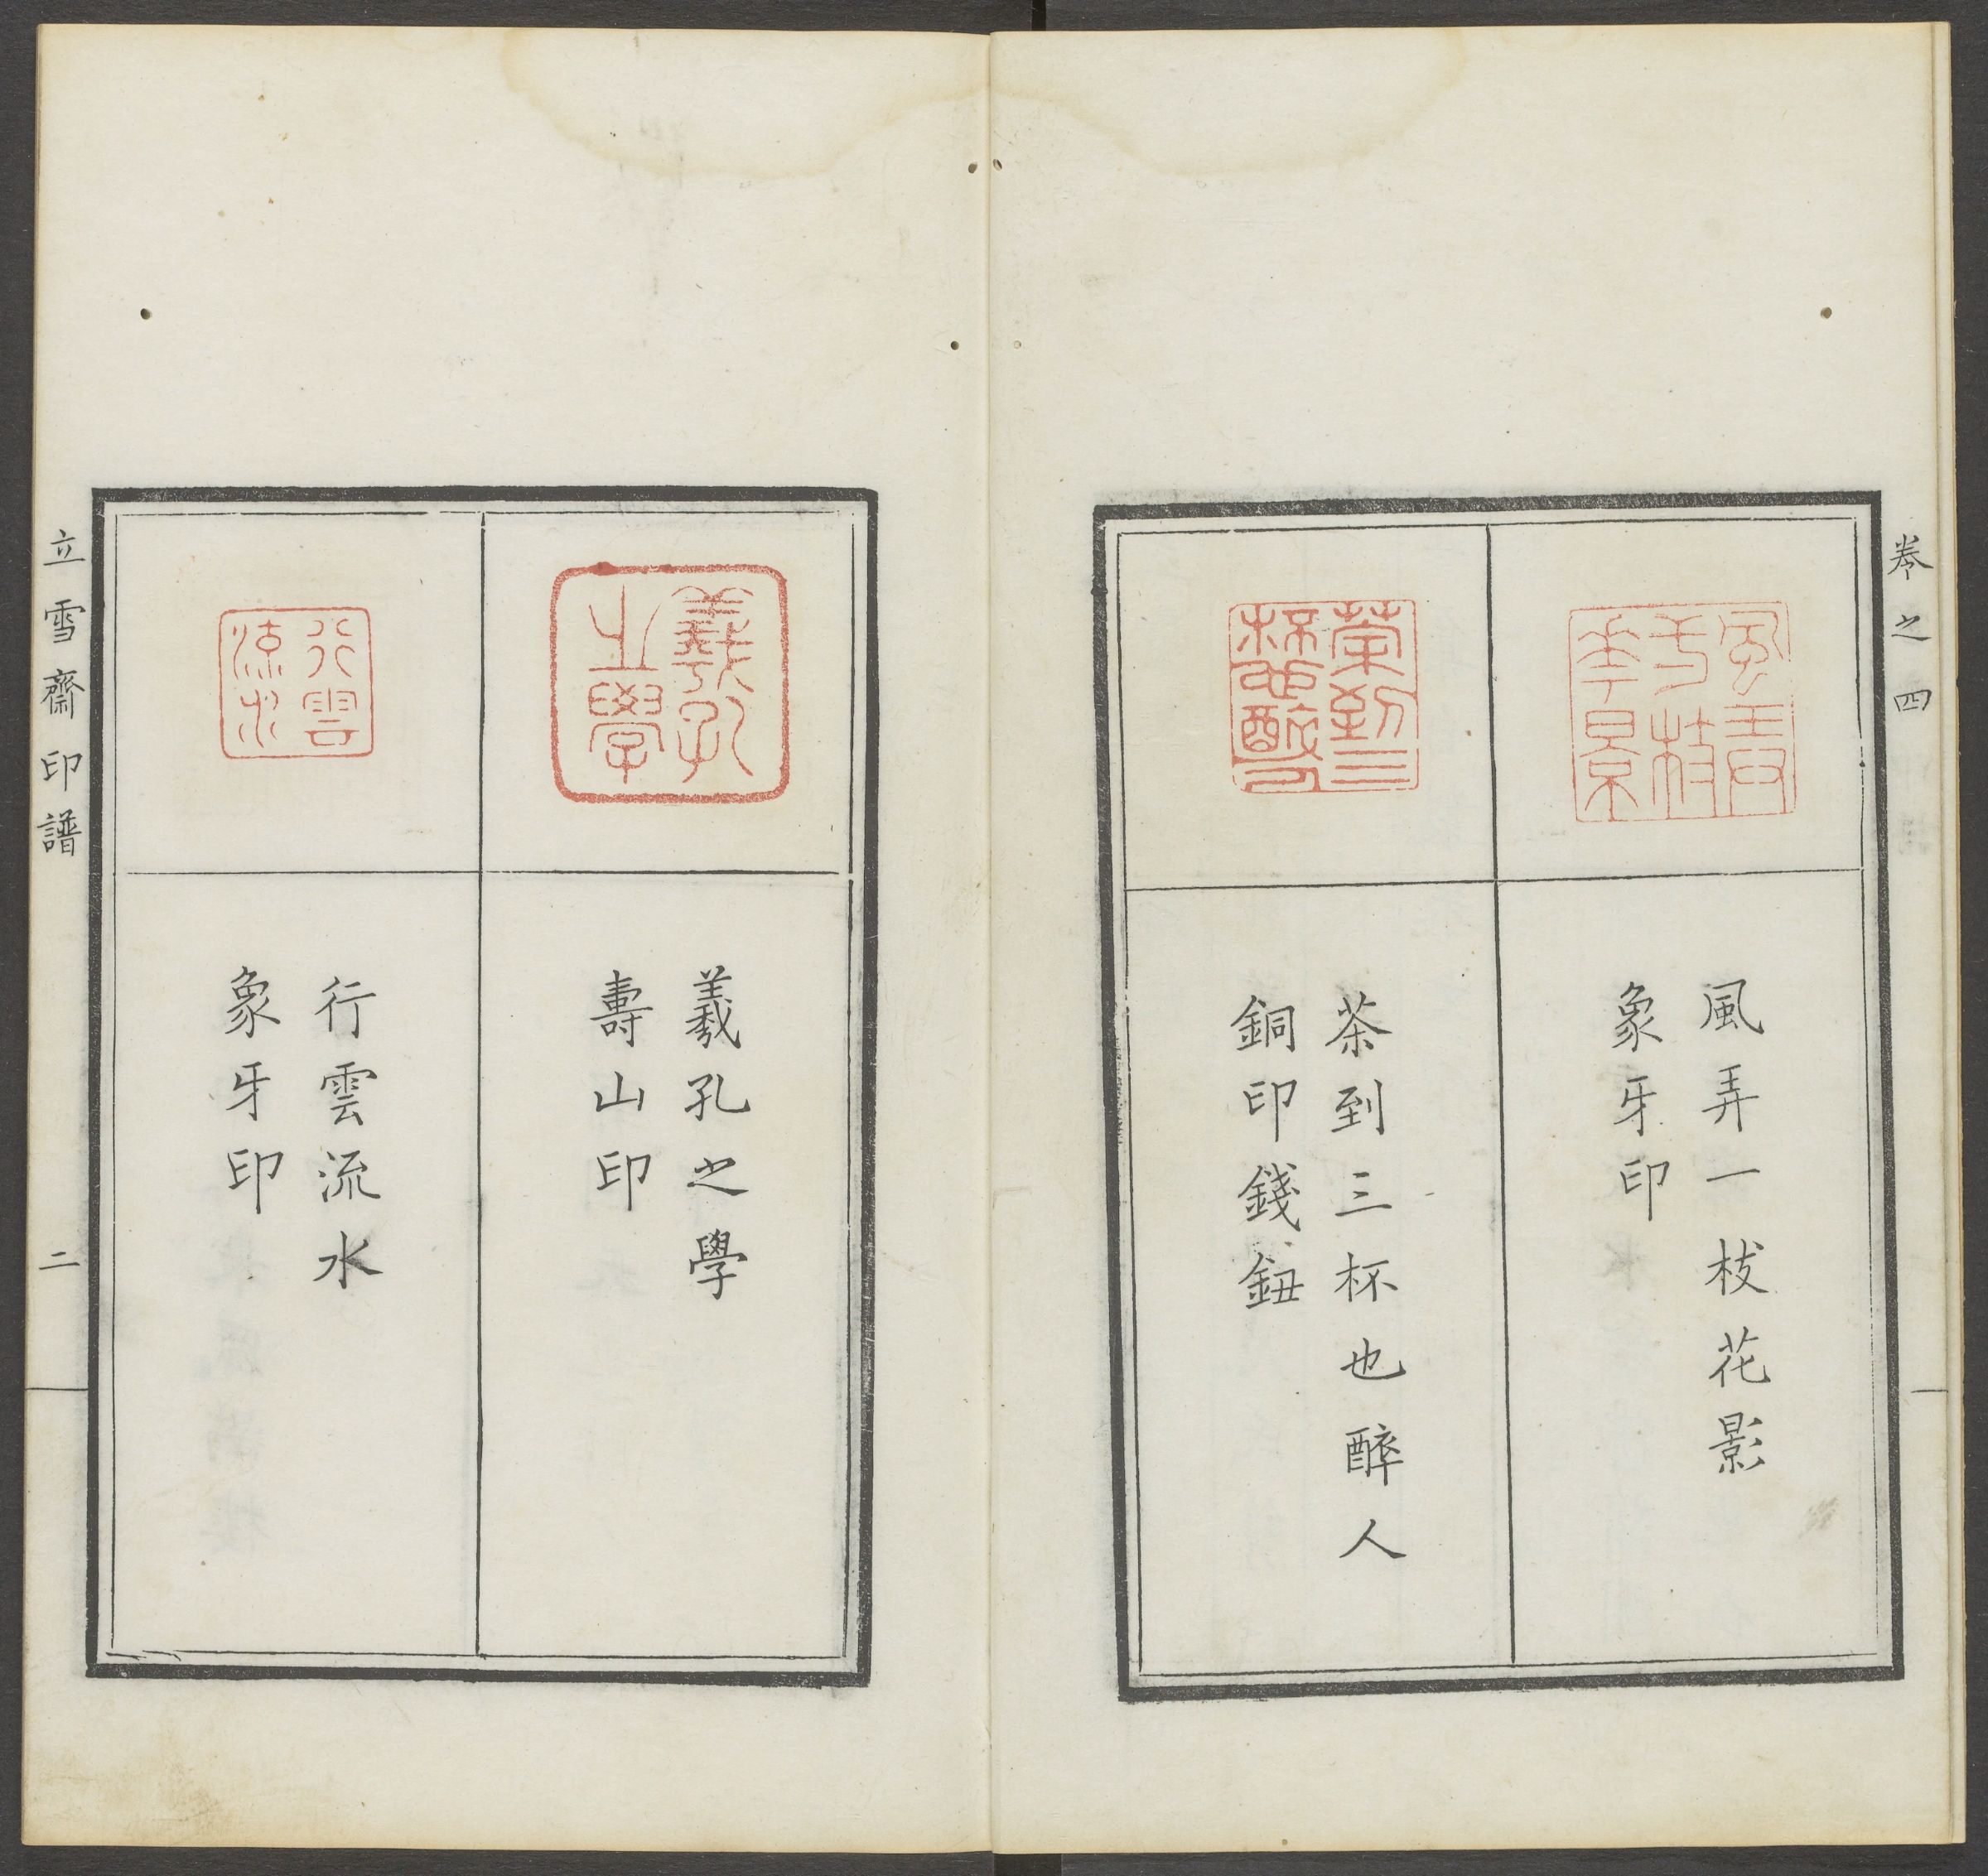 卷之四
一
風弄一枝花影
象牙印
茶到三杯也醉人
銅印錢鈕
羲孔之學
壽山印
行雲流水
象牙印
立雪齋印譜
二